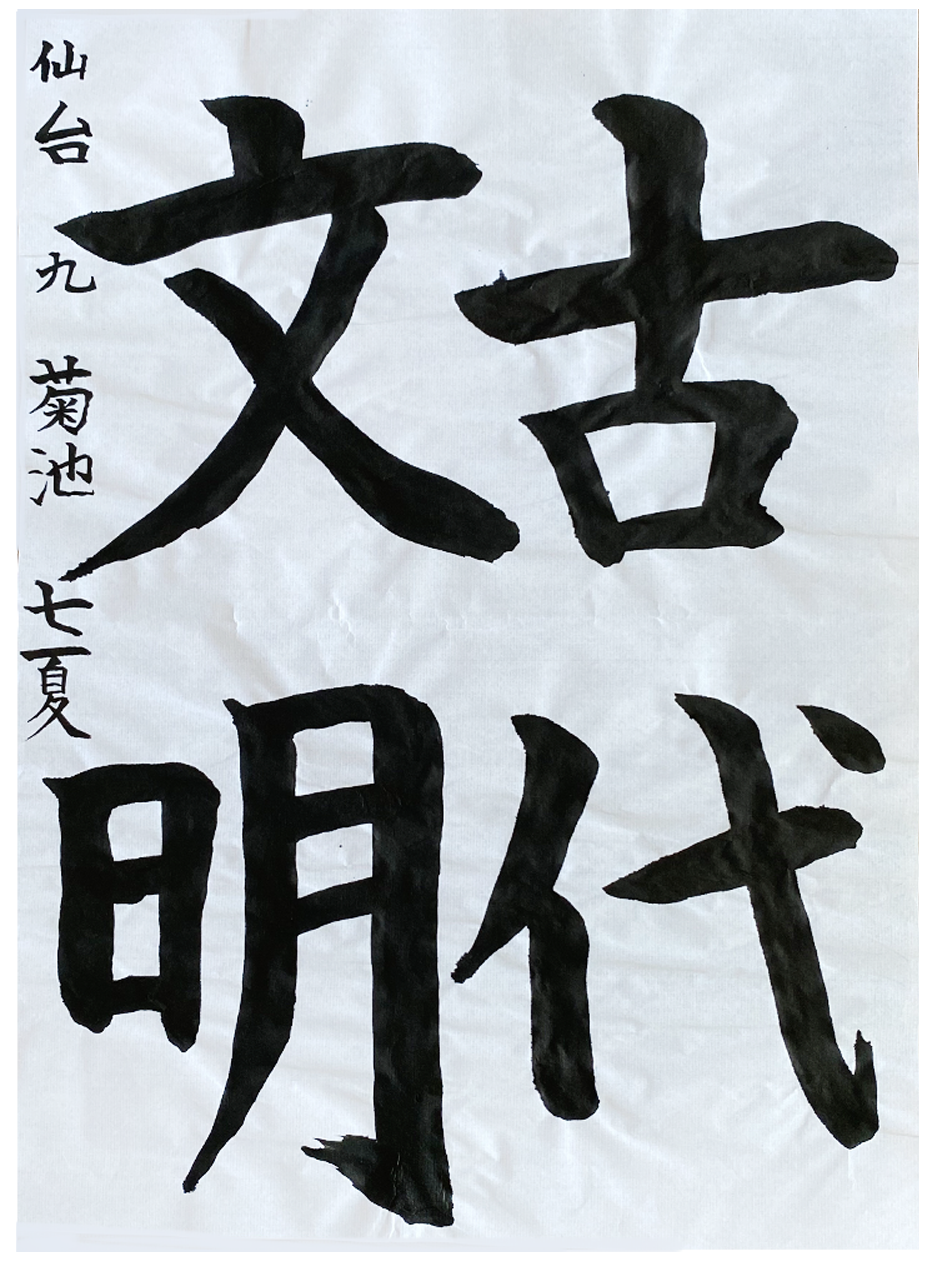 古代
文明
仙台 九 菊池 七夏